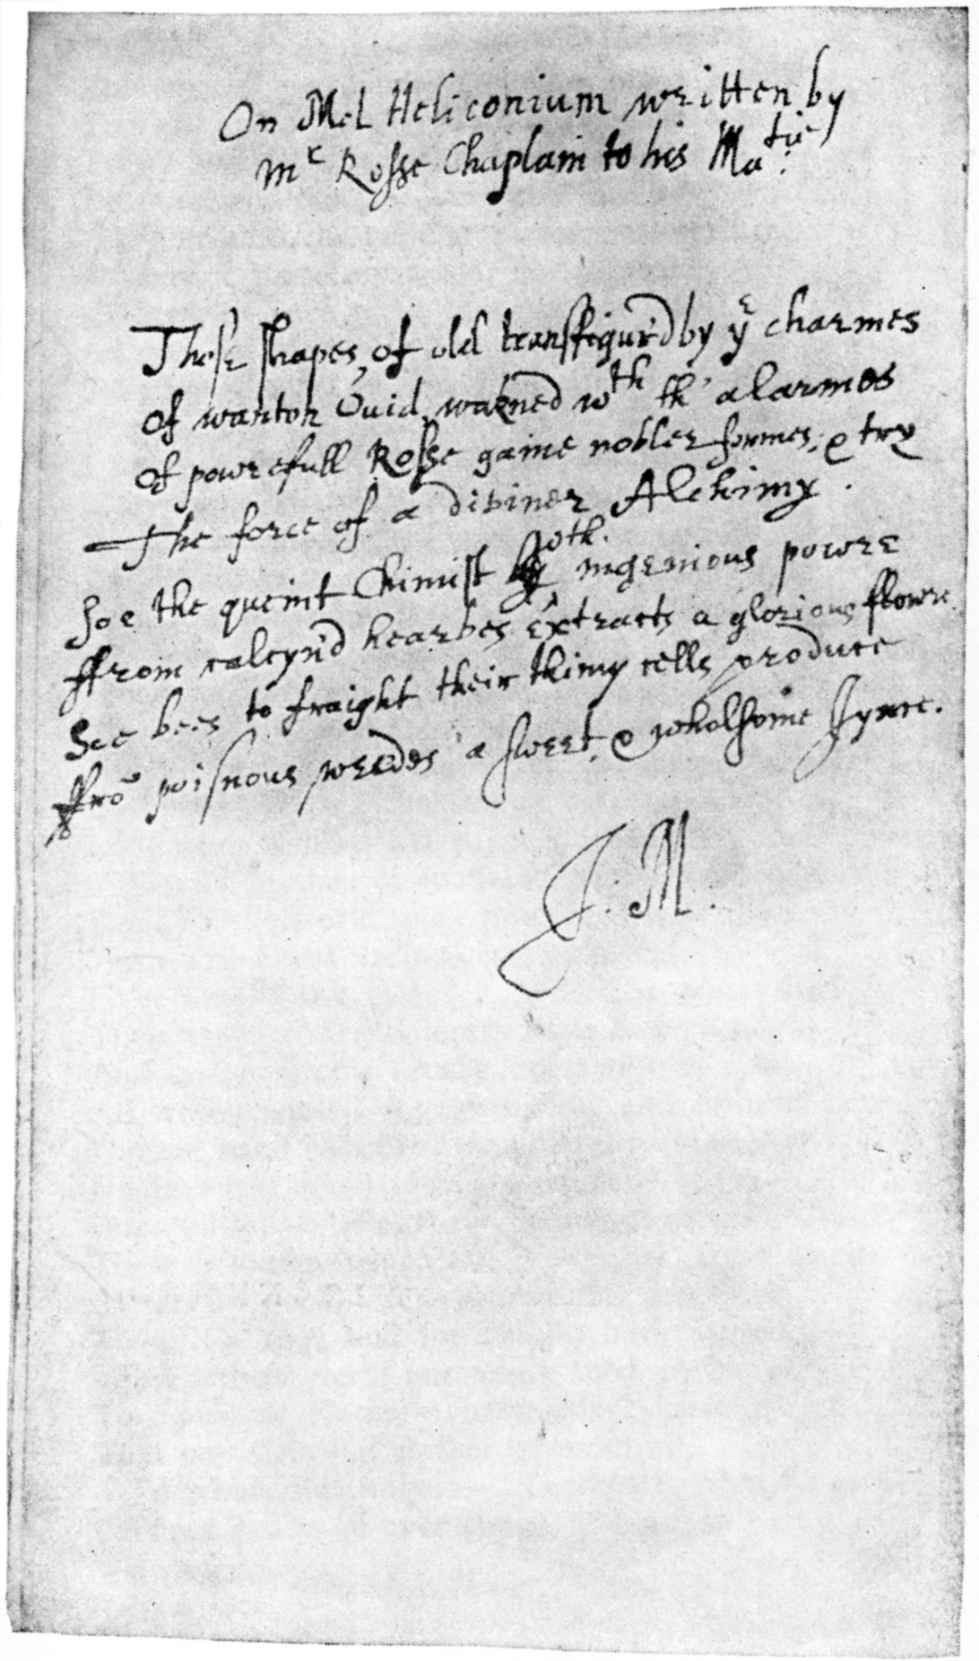 On Mel Heliconium written by
Mr Rosse Chaplain to his Matie.
Those shapes, of old transfigur'd by ye charmes
of wanton Ouid, wakned wth th' alarmes
of powrefull Rosse gaine nobler formes, & try
The force of a diviner Alchimy.
Soe the queint Chimist wth. ingenious powre
ffrom calcyn'd hearbes extracts a glorious flowre
Soe bees to fraight their thimy cells produce
ffrō poisnous weedes a sweet, & wholsome Iyuce.
J. M.